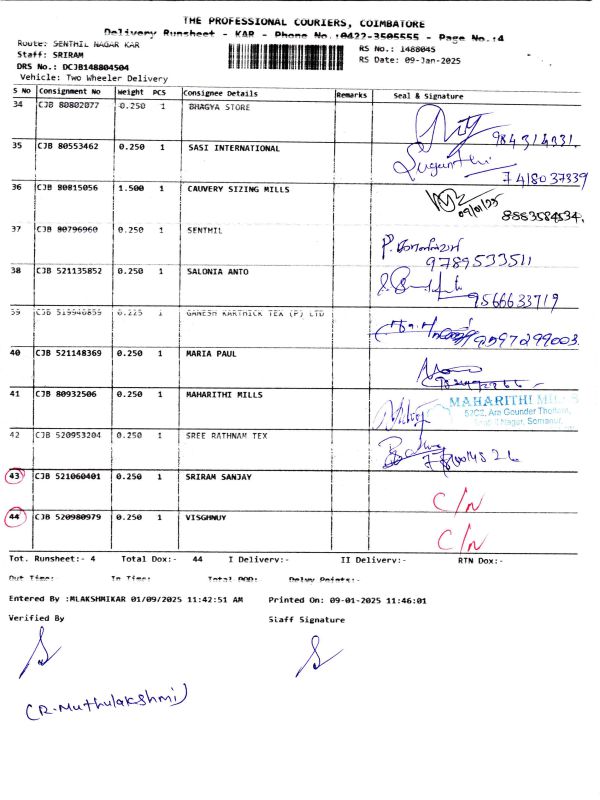 THE PROFESSIONAL COURIERS, COIMBATORE
Delivery Runsheet - KAR - Phone No.:0422-3505555 - Page No.:4
Route: SENTHIL NAGAR KAR
RS No.: 1488045
Staff: SRIRAM
RS Date: 09-Jan-2025
DRS No.: DCJB148804504
Vehicle: Two Wheeler Delivery
S No Consignment No Weight PCS Consignee Details Remarks Seal & Signature
34 CJB 80802077 0.250 1 BHAGYA STORE
35 CJB 80553462 0.250 1 SASI INTERNATIONAL
Suganthi
7418037339
36 CJB 80815056 1.500 1 CAUVERY SIZING MILLS
09/01/25
8883584534.
37 CJB 80796960 0.250 1 SENTHIL
9789533511
38 CJB 521135852 0.250 1 SALONIA ANTO
9566633719
39 CJB 519940859 0.225 1 GANESH KARTHICK TEX (P) LTD
40 CJB 521148369 0.250 1 MARIA PAUL
41 CJB 80932506 0.250 1 MAHARITHI MILLS
MAHARITHI MILLS
42 CJB 520953204 0.250 1 SREE RATHNAM TEX
43 CJB 521060401 0.250 1 SRIRAM SANJAY
C/N
44 CJB 520980979 0.250 1 VISGHNUY
C/N
Tot. Runsheet:- 4 Total Dox:- 44 I Delivery:- II Delivery:- RTN Dox:-
Out Time:- In Time:- Total POD: Delay Points:-
Entered By :MLAKSHMIKAR 01/09/2025 11:42:51 AM Printed On: 09-01-2025 11:46:01
Verified By Staff Signature
(R.Muthulakshmi)